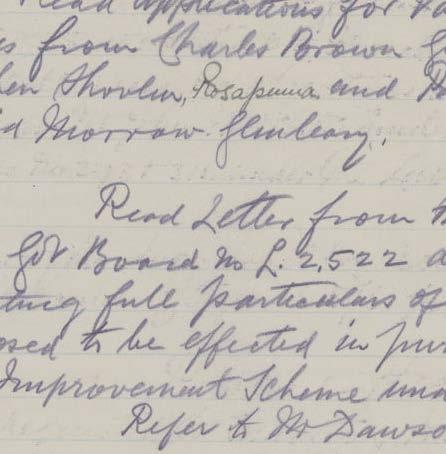 Read applications for
s from Charles Brown G
hen Shovlin, Rosapenna and
id Morrow Glenleary.
Read Letter from th
Gov Board No L. 2,522 a
ting full particulars of
osed to be effected in pur
Improvement Scheme und
Refer to Mr Dawso